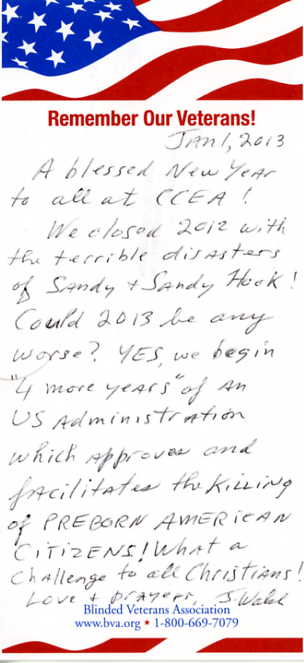 Remember Our Veterans!
JAN 1, 2013
A blessed New Year
to all at CCEA!
We closed 2012 with
the terrible disasters
of Sandy + Sandy Hook!
Could 2013 be any
worse? YES, we begin
"4 more years" of an
US Administration
which approves and
facilitates the KILLING
of PREBORN AMERICAN
CITIZENS! What a
Challenge to all Christians!
Love + prayers, J. Walsh
Blinded Veterans Association
www.bva.org ★ 1-800-669-7079